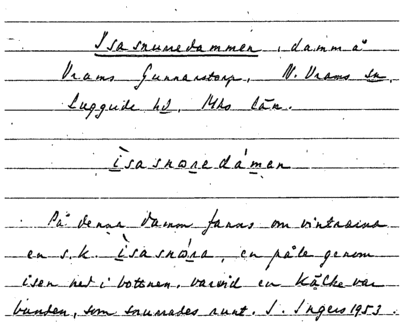 Isasnurredammen, damm å
Vrams Gunnarstorp, N. Vrams sn,
Luggude hd, Mhs län.
ìsasnɷredámen
På denna damm fanns om vintrarna
en s.k. ìsasnɷra, en påle genom
isen ned i bottnen, varvid en kälke var
bunden, som snurrades runt. I. Ingers 1953.